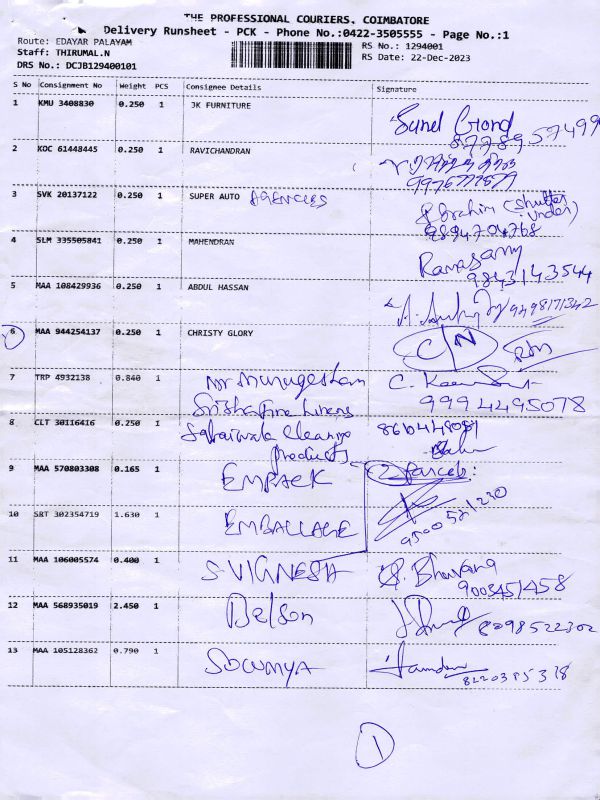 THE PROFESSIONAL COURIERS, COIMBATORE
Delivery Runsheet - PCK - Phone No.:0422-3505555 - Page No.:1
Route: EDAYAR PALAYAM
Staff: THIRUMAL.N
DRS No.: DCJB129400101
RS No.: 1294001
RS Date: 22-Dec-2023
S No Consignment No Weight PCS Consignee Details Signature
1 KMU 3408830 0.250 1 JK FURNITURE
8778957499
2 KOC 61448445 0.250 1 RAVICHANDRAN
3 SVK 20137122 0.250 1 SUPER AUTO AGENCIES
Ibrahim (Shutter under)
9894704768
4 SLM 335505841 0.250 1 MAHENDRAN Ramasamy
9843143544
5 MAA 108429936 0.250 1 ABDUL HASSAN 9498171342
6 MAA 944254137 0.250 1 CHRISTY GLORY C/N
7 TRP 4932138 0.840 1 Mr Murugesham
9994495078
8 CLT 30116416 0.250 1 Sabaiwala Cleaning products
9 MAA 570803308 0.165 1 EMPACK 2 Parcels:
10 SRT 302354719 1.630 1 EMBALLAGE 9500521230
11 MAA 106005574 0.400 1 S.VIGNESH Bhuvana
9003451458
12 MAA 568935019 2.450 1 Delson 8098522302
13 MAA 105128362 0.790 1 SOWMYA
8220385318
1